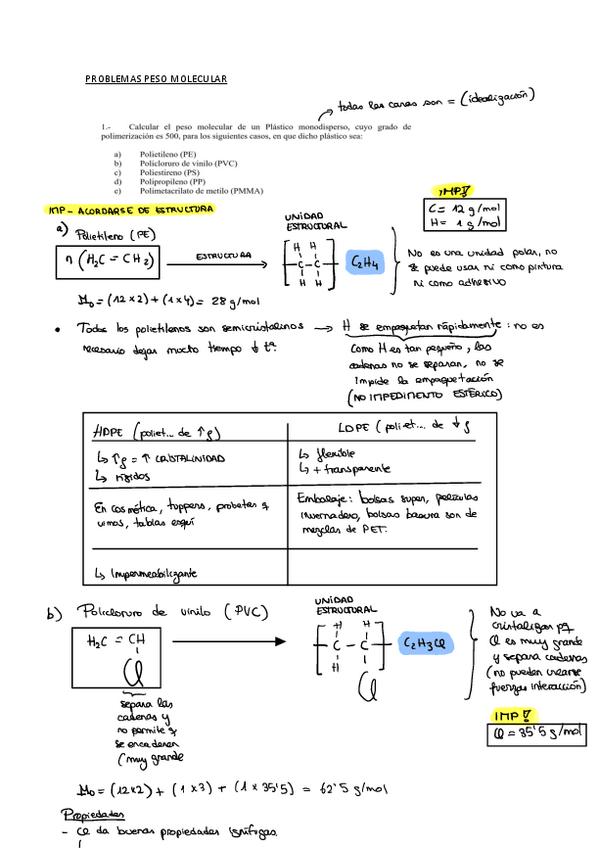 PROBLEMAS PESO MOLECULAR
todas las caras son = (idealización)
1.- Calcular el peso molecular de un Plástico monodisperso, cuyo grado de
polimerización es 500, para los siguientes casos, en que dicho plástico sea:
a) Polietileno (PE)
b) Policloruro de vinilo (PVC)
c) Poliestireno (PS)
d) Polipropileno (PP)
e) Polimetacrilato de metilo (PMMA)
IMP!
C = 12 g/mol
H = 1 g/mol
IMP - ACORDARSE DE ESTRUCTURA
a) Polietileno (PE)
n (H₂C = CH₂)
ESTRUCTURA
UNIDAD
ESTRUCTURAL
H H
- C - C -
H H
C₂H₄
No es una unidad polar, no
se puede usar ni como pintura
ni como adhesivo
M₀ = (12 x 2) + (1 x 4) = 28 g/mol
• Todos los polietilenos son semicristalinos → H se empaquetan rápidamente: no es
necesario dejar mucho tiempo ↓ tª.
como H es tan pequeño, las
cadenas no se separan, no se
impide la empaquetación
(NO IMPEDIMENTO ESTÉRICO)
HDPE (poliet... de ↑ρ)
LDPE (poliet... de ↓ρ
↳ ↑ρ = ↑ CRISTALINIDAD
↳ rígidos
↳ flexible
↳ + transparente
En cosmética, tuppers, probetas q
vimos, tablas esquí
Embalaje: bolsas super, películas
invernadero, bolsas basura son de
mezclas de PET.
↳ Impermeabilizante
b) Policloruro de vinilo (PVC)
H₂C = CH
Cl
separa las
cadenas y
no permite q
se encadenen
(muy grande
UNIDAD
ESTRUCTURAL
H H
- C - C -
H
Cl
C₂H₃Cl
No va a
cristalizar pq
Cl es muy grande
y separa cadenas
(no pueden crearse
fuerzas interacción)
IMP!
Cl = 35'5 g/mol
M₀ = (12x2) + (1 x 3) + (1 x 35'5) = 62'5 g/mol
Propiedades
- Cl da buenas propiedades ignífugas.